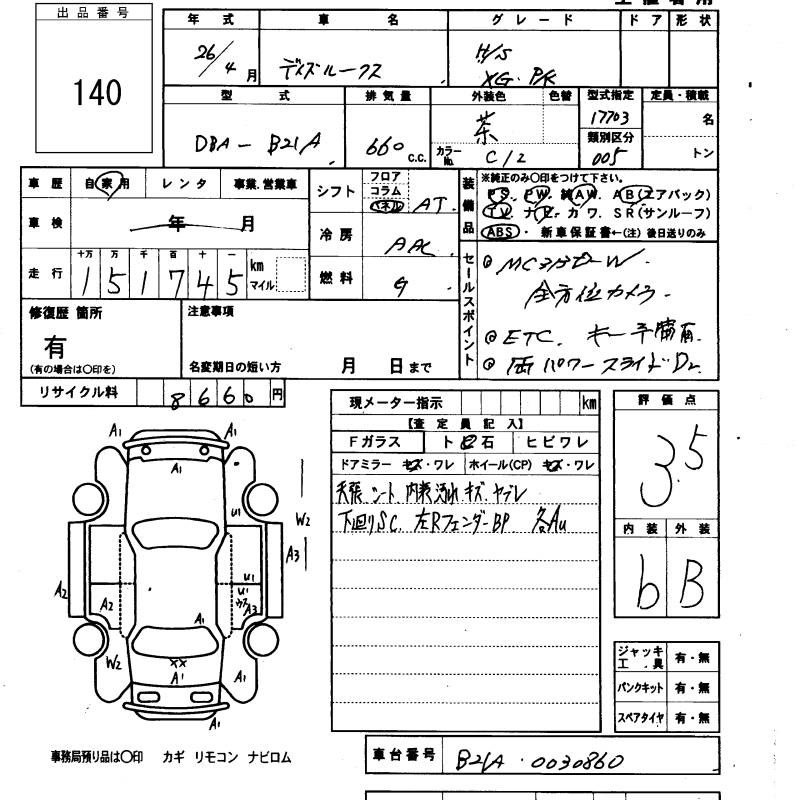 出品番号
140
年式 車名 グレード ドア 形状
26/4月 デイズルークス H/S
XG. PK
型式 排気量 外装色 色替 型式指定 定員・積載
DBA - B21A 660 c.c. 茶 17703 名
カラーNo. C12 類別区分 005 トン
車歴 自家用 レンタ 事業.営業車
シフト フロア コラム パネル AT.
車検 年 月
冷房 AAC
走行 十万 万 千 百 十 一
1 5 1 7 4 5 km マイル
燃料 G
装備品
※純正のみ〇印をつけて下さい。
PS. PW. 純AW. AB(エアバック)
TV. ナビ. カワ. SR(サンルーフ)
ABS ・ 新車保証書←(注) 後日送りのみ
セールスポイント
全方位カメラ.
ETC. キー
パワースライドDr.
修復歴 箇所
有
(有の場合は〇印を)
注意事項
名変期日の短い方 月 日まで
リサイクル料 8660円
現メーター指示 km
【査定員記入】
Fガラス ト日石 ヒビワレ
ドアミラー キズ・ワレ ホイール(CP) キズ・ワレ
天張 シート 内装 汚れ キズ ヤブレ
下廻りSC. 左Rフェンダー BP 各AU
評価点
3.5
内装 外装
b B
A1 A1
A1
U1
W2
A3
U1
A2 A2 U1
A3
A1
W2 XX
A1 A1
A1
ジャッキ 工.具 有・無
パンクキット 有・無
スペアタイヤ 有・無
事務局預り品は〇印 カギ リモコン ナビロム
車台番号 B21A - 0030860